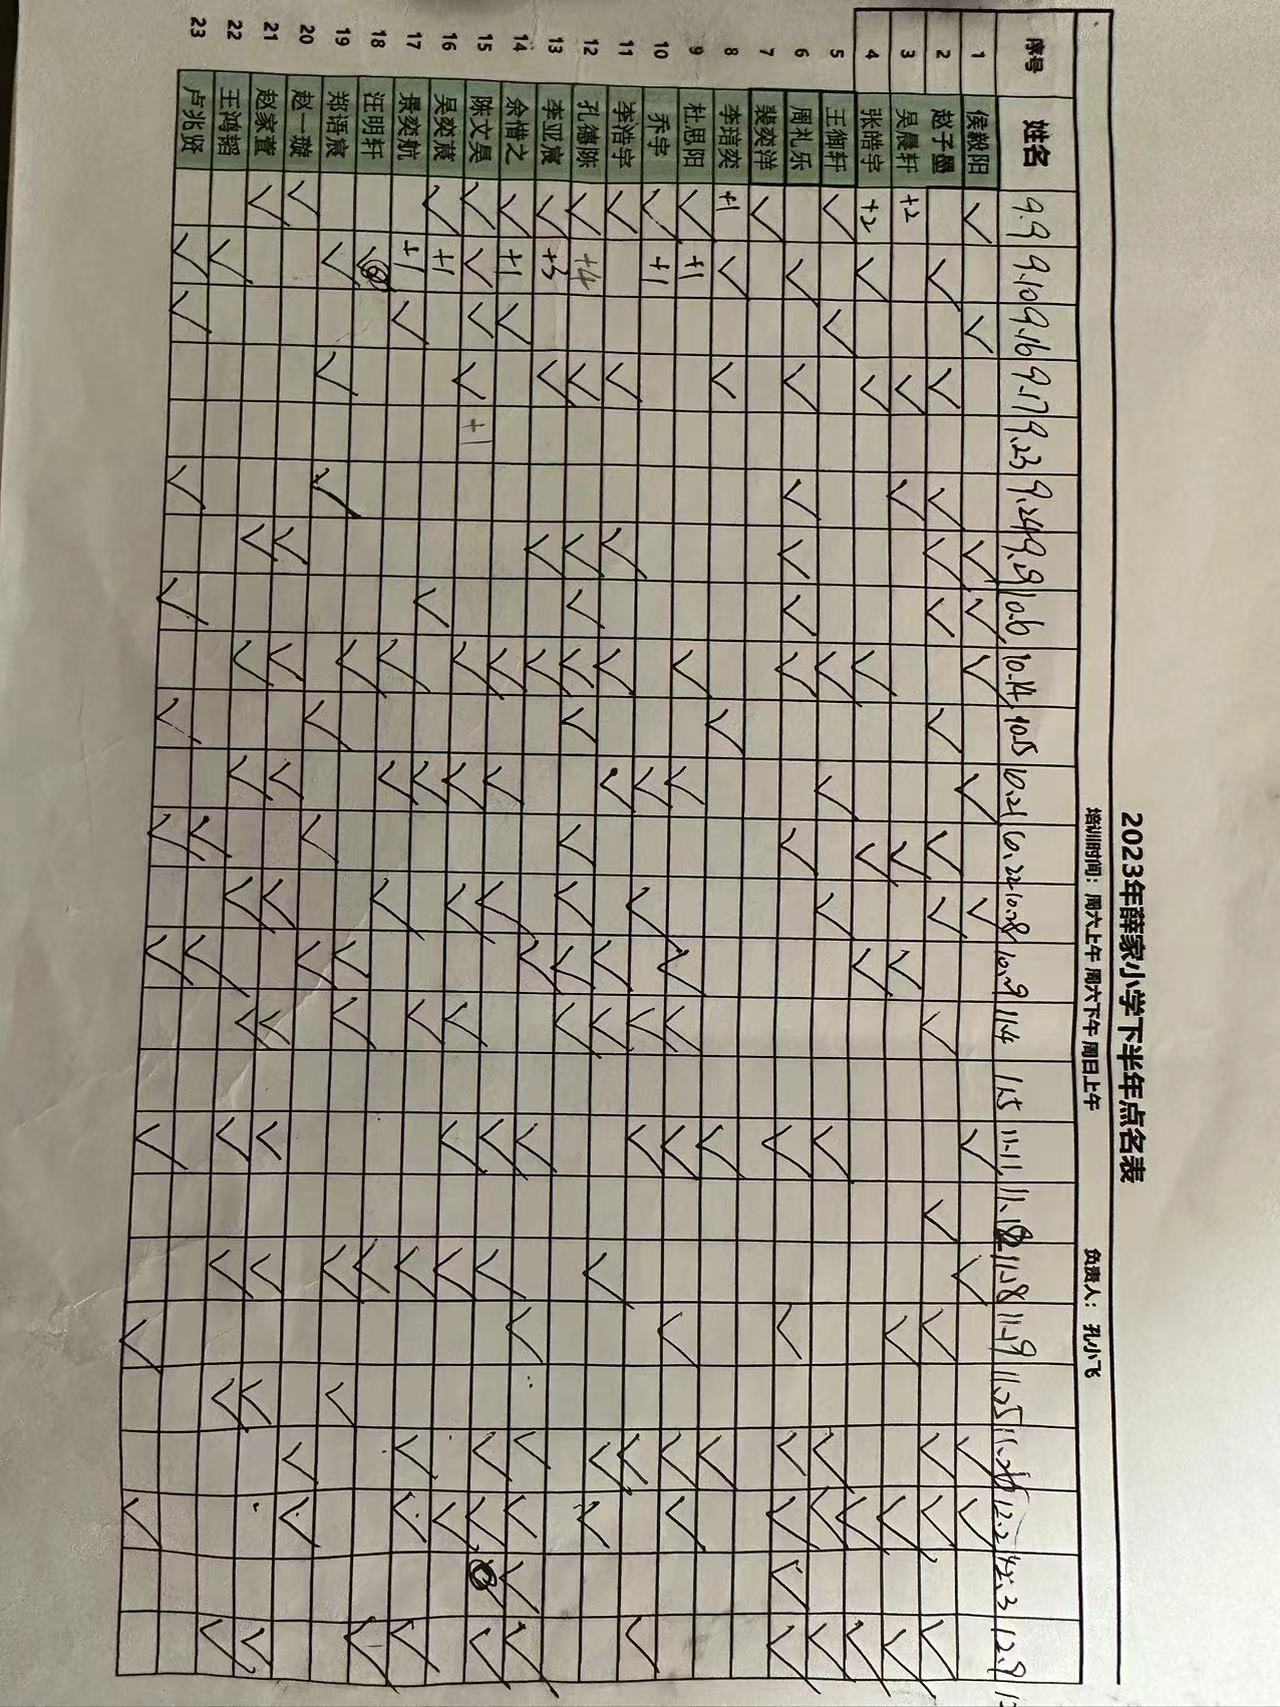 2023年薛家小学下半年点名表
培训时间：周六上午 周六下午 周日上午 负责人：孔小飞
序号 姓名 9.9 9.10 9.16 9.17 9.23 9.24 9.9 10.6 10.14 10.15 10.21 10.22 10.28 10.29 11.4 11.5 11.11 11.12 11.18 11.19 11.25 11.26 12.2 12.3 12.9
1 侯毅阳
2 赵子墨
3 吴晨轩 +2
4 张皓宇 +2
5 王御轩
6 周礼乐
7 裴奕洋
8 李琣奕 +1
9 杜思阳 +1
10 乔宇 +1
11 李浩宇
12 孔德陈 +4
13 李亚宸 +3
14 余惜之 +1
15 陈文昊 +1
16 吴奕宸 +1
17 景奕航 +1
18 汪明轩
19 郑语宸
20 赵一璇
21 赵家萱
22 王鸿韬
23 卢兆贤